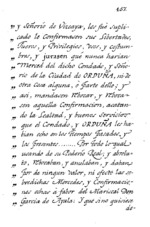 452
y Señorio de Vizcaya, les fué supli-
cado le Confirmacion sus Libertades,
Fueros, y Privilegios, Usos, y costum-
bres, y juraren què nunca harian
Merced del dicho Condado, y Seño-
rio de la Ciudad de ORDUÑA, ni de
otra Cosa alguna, ò parte dello, y
así, mandaron, y
con aquella Confirmacion, acatan-
do la Lealtad, y buenos Servicios
que el Condado, y ORDUÑA les ha-
bian echo en los tiempos pasados, y
les Por todo lo qual
usando de su Poderio Real, y absolu-
to, y anulaban, y daban
por de ningun Valor, ni efecto las so-
bredichas Mercedes, y Confirmacio-
nes echas à fabor del Mariscal Don
Garcia de Ayala: Y que sime quisiera
de-